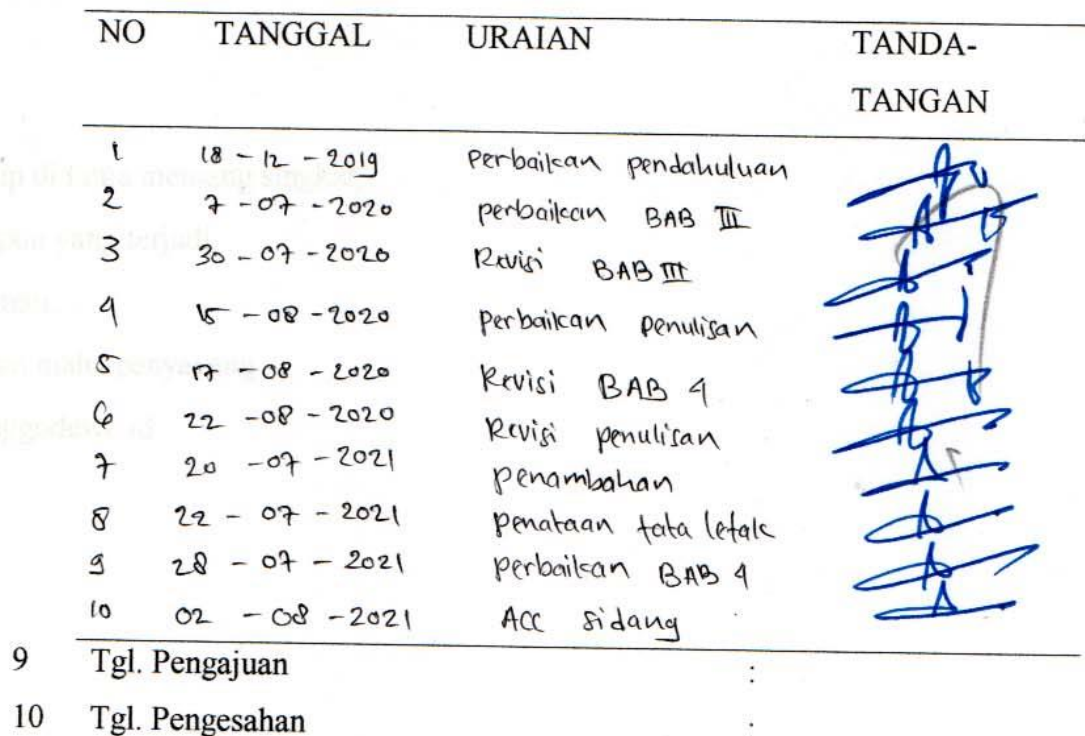 NO TANGGAL URAIAN TANDA-
TANGAN
1 18 - 12 - 2019 perbaikan pendahuluan
2 7 - 07 - 2020 perbaikan BAB III
3 30 - 07 - 2020 Revisi BAB III
4 15 - 08 - 2020 perbaikan penulisan
5 17 - 08 - 2020 Revisi BAB 4
6 22 - 08 - 2020 Revisi penulisan
7 20 - 07 - 2021 penambahan
8 22 - 07 - 2021 penataan tata letak
9 28 - 07 - 2021 perbaikan BAB 4
10 02 - 08 - 2021 ACC sidang
9 Tgl. Pengajuan :
10 Tgl. Pengesahan :